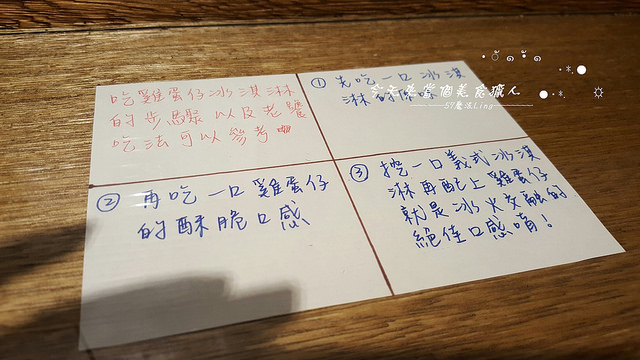 吃雞蛋仔冰淇淋
的步驟以及老饕
吃法可以參考
① 先吃一口冰淇
淋的
② 再吃一口雞蛋仔
的酥脆口感
③ 挖一口義式冰淇
淋再配上雞蛋仔
就是冰火交融的
絕佳口感唷!
今天是當個美食獵人
57魔法Ling